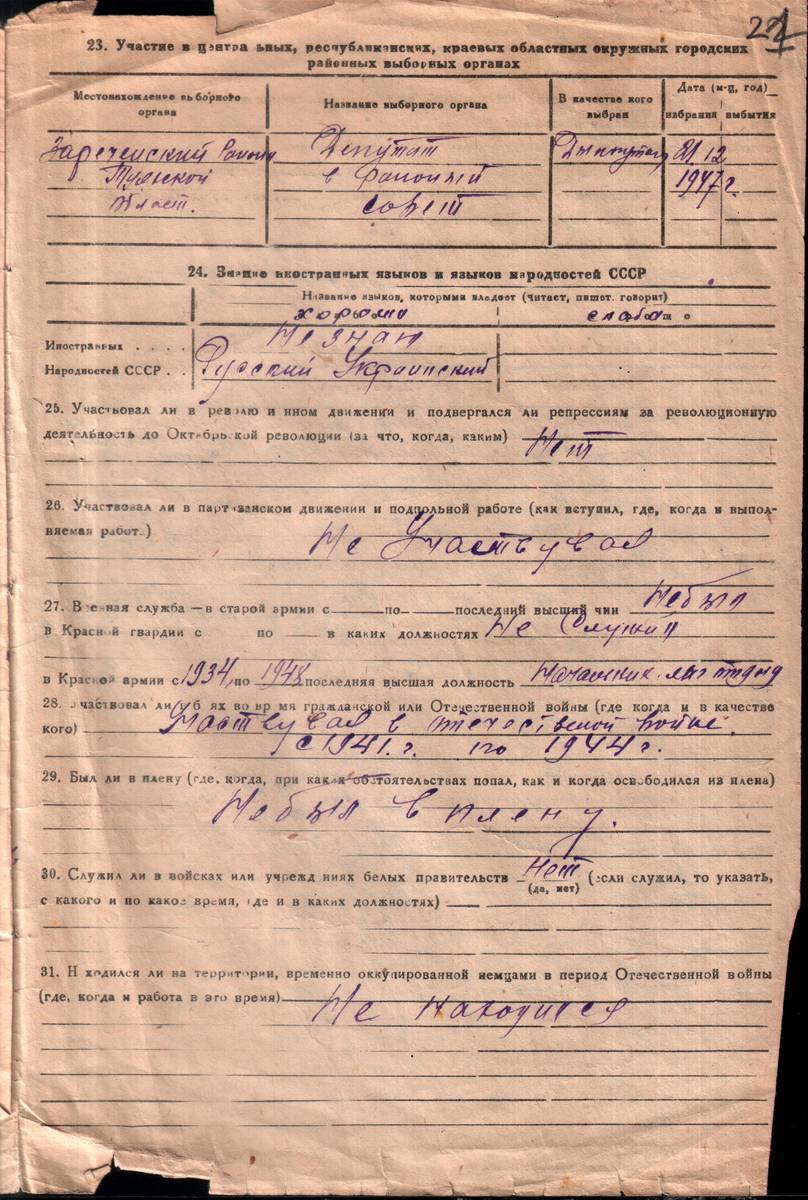 22
23. Участие в центра ьных, республиканских, краевых областных окружных городских
районных выборных органах
Местонахождение выборного органа
Название выборного органа
В качестве кого выбран
Дата (м-ц, год)
избрания выбытия
Зареченский Депутат Депутат 21.12
Тульской в районый 1947 г.
област. совет
24. Знание иностранных языков и языков народностей СССР
Название языков, которыми владеет (читает, пишет. говорит)
хорошо слабо
Иностранных . . . . Не знаю
Народностей СССР . . Русский Украинский
25. Участвовал ли в револю и нном движении и подвергался ли репрессиям за революционную
деятельность до Октябрьской революции (за что, когда, каким) Нет
26. Участвовал ли в партизанском движении и подпольной работе (как вступил, где, когда и выпол-
няемая работа) Не Участвувал
27. Военная служба — в старой армии с по последний высший чин Небыл
в Красной гвардии с по в каких должностях Не Служил
в Красной армии с 1934 по 1948 последняя высшая должность Началник
28. Участвовал ли в б ях во время гражданской или Отечественной войны (где когда и в качестве
кого) Участвувал в отечественой войне
с 1941. г. по 1944 г.
29. Был ли в плену (где, когда, при каких обстоятельствах попал, как и когда освободился из плена)
Небыл в плену.
30. Служил ли в войсках или учрежд ниях белых правительств Нет (если служил, то указать,
(да, нет)
с какого и по какое время, где и в каких должностях)
31. Н ходился ли на территории, временно оккупированной немцами в период Отечественной войны
(где, когда и работа в это время) Не находился